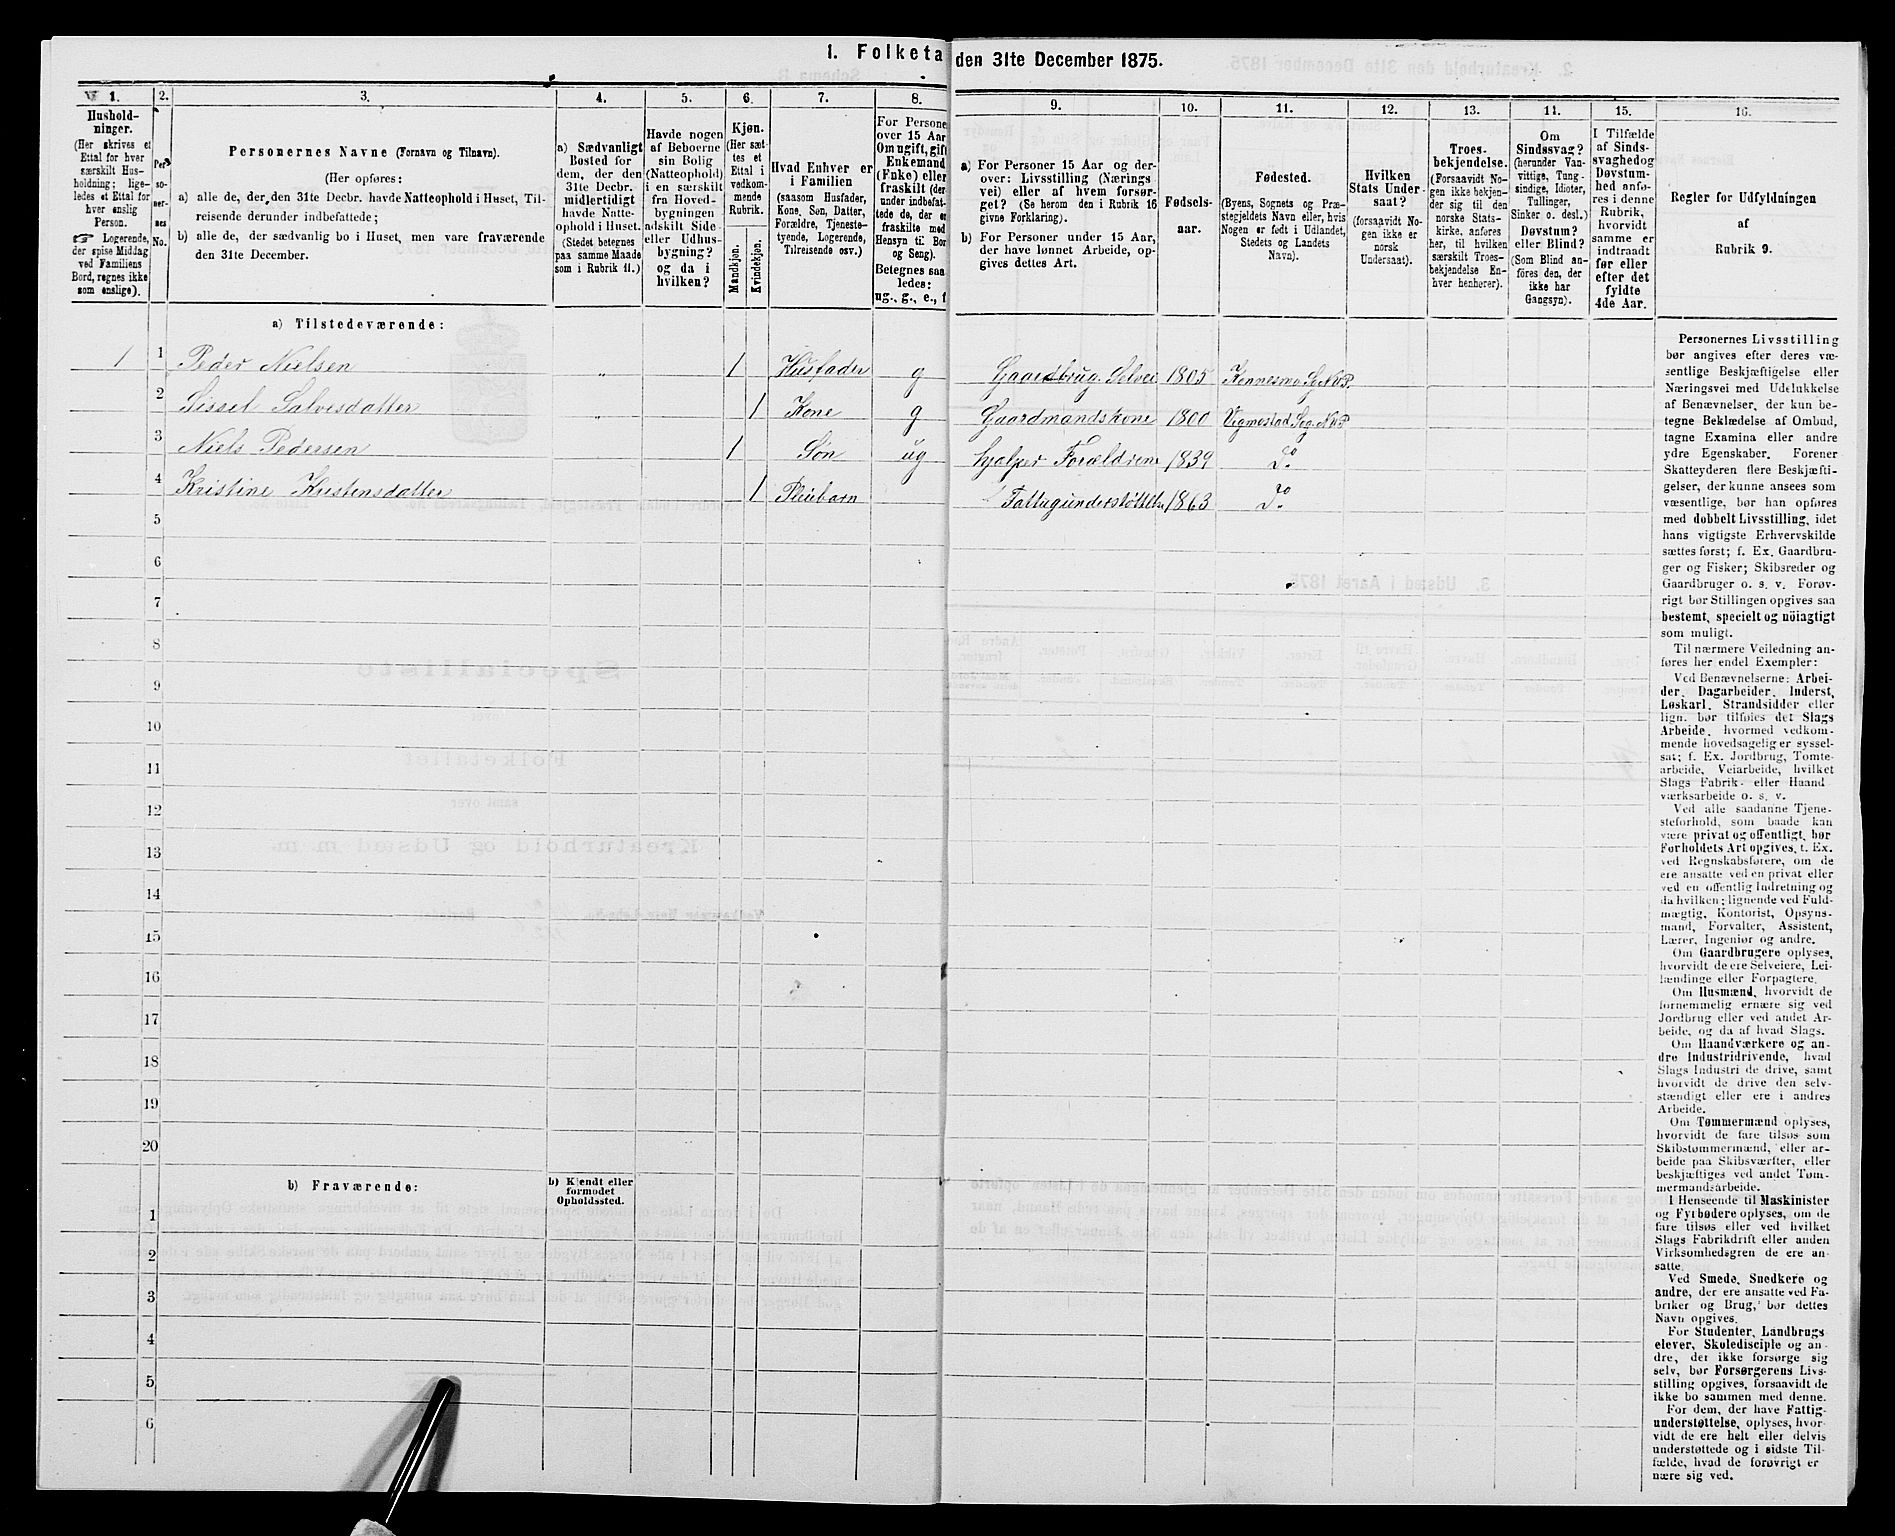 1. Folketa
den 31te December 1875.
1.
2.
3.
4.
5.
6.
7.
8.
9.
10.
11.
12.
13.
14.
15.
16.
Hushold-
ninger.
(Her skrives et
Ettal for hver
særskilt Hus-
holdning; lige-
ledes et Ettal for
hver enslig
Person.
☞ Logerende,
der spise Middag
ved Familiens
Bord, regnes ikke
som enslige).
Per-
so-
ner-
nes
No.
Personernes Navne (Fornavn og Tilnavn).
(Her opføres:
a) alle de, der den 31te Decbr. havde Natteophold i Huset, Til-
reisende derunder indbefattede;
b) alle de, der sædvanlig bo i Huset, men vare fraværende
den 31te December.
a) Sædvanligt
Bosted for
dem, der den
31te Decbr.
midlertidigt
havde Natte-
ophold i Huset.
(Stedet betegnes
paa samme Maade
som i Rubrik 11.)
Havde nogen
af Beboerne
sin Bolig
(Natteophold)
i en særskilt
fra Hoved-
bygningen
adskilt Side-
eller Udhus-
bygning?
og da i
hvilken?
Kjøn.
(Her sæt-
tes et
Ettal i
vedkom-
mende
Rubrik.
Mandkjøn.
Kvindekjøn.
Hvad Enhver er
i Familien
(saasom Husfader,
Kone, Søn, Datter,
Forældre, Tjeneste-
tyende, Logerende,
Tilreisende osv.)
For Persone
over 15 Aar
Om ugift, gift
Enkemand
(Enke) eller
fraskilt (der
under indbefat-
tede de, der er
fraskilte med
Hensyn til Bor
og Seng).
Betegnes saa
ledes:
ug., g., e., f
a) For Personer 15 Aar og der-
over: Livsstilling (Nærings
vei) eller af hvem forsør-
get? (Se herom den i Rubrik 16
givne Forklaring).
b) For Personer under 15 Aar,
der have lønnet Arbeide, op-
gives dettes Art.
Fødsels-
aar.
Fødested.
(Byens, Sognets og Præ-
stegjeldets Navn eller, hvis
Nogen er født i Udlandet,
Stedets og Landets
Navn).
Hvilken
Stats Under-
saat?
(forsaavidt No-
gen ikke er
norsk
Undersaat).
Troes-
bekjendelse.
(Forsaavidt No-
gen ikke bekjen-
der sig til den
norske Stats-
kirke, anføres
her, til hvilken
særskilt Troes-
bekjendelse En-
hver henhører).
Om
Sindssvag?
(herunder Van-
vittige, Tung-
sindige, Idioter,
Tullinger,
Sinker o. desl.)
Døvstum?
eller Blind?
(Som Blind an-
føres den, der
ikke har
Gangsyn).
I Tilfælde
af Sinds-
svaghed og
Døvstum-
hed anfø-
res i denne
Rubrik,
hvorvidt
samme er
indtraadt
før eller
efter det
fyldte
4de Aar.
Regler for Udfyldningen
af
Rubrik 9.
a) Tilstedeværende:
1 1 Peder Nielsen „ 1 Husfader g Gaardbrug. Selvei 1805
2 Sissel Salvesdatter „ 1 Kone g Gaardmandskone 1800 Vigmostad Sog. N&P
3 Niels Pedersen 1 Søn ug hjælper Forældrene 1839 Do
4 Kristine Kristensdatter 1 Pleiebarn 1863 Do
5
6
7
8
9
10
11
12
13
14
15
16
17
18
19
20
b) Fraværende:
b) Kjendt eller
formodet
Opholdssted.
1
2
3
4
5
6
Personernes Livsstilling
bør angives efter deres væ-
sentlige Beskjæftigelse eller
Næringsvei med Udelukkelse
af Benævnelser, der kun be-
tegne Beklædelse af Ombud,
tagne Examina eller andre
ydre Egenskaber. Forener
Skatteyderen flere Beskjæfti-
gelser, der kunne ansees som
væsentlige, bør han opføres
med dobbelt Livsstilling, idet
hans vigtigste Erhvervskilde
sættes først; f. Ex. Gaardbru-
ger og Fisker; Skibsreder og
Gaardbruger o. s. v. Forøv-
rigt bør Stillingen opgives saa
bestemt, specielt og nöiagtigt
som muligt.
Til nærmere Veiledning an-
føres her endel Exempler:
Ved Benævnelserne: Arbei-
der, Dagarbeider, Inderst,
Løskarl, Strandsidder eller
lign. bør tilføies det Slags
Arbeide, hvormed vedkom-
mende hovedsagelig er syssel-
sat; f. Ex. Jordbrug, Tomte-
arbeide, Veiarbeide, hvilket
Slags Fabrik- eller Haand
værksarbeide o. s. v.
Ved alle saadanne Tjene-
steforhold, som baade kan
være privat og offentligt, bør
Forholdets Art opgives, f. Ex.
ved Regnskabsførere, om de
ere ansatte ved en privat eller
ved en offentlig Indretning og
da hvilken; lignende ved Fuld-
mægtig, Kontorist, Opsyns-
mand, Forvalter, Assistent,
Lærer, Ingeniør og andre.
Om Gaardbrugere oplyses,
hvorvidt de ere Selveiere, Lei-
lændinge eller Forpagtere.
Om Husmænd, hvorvidt de
fornemmelig ernære sig ved
Jordbrug eller ved andet Ar-
beide, og da af hvad Slags.
Om Haandværkere og an-
dre Industridrivende, hvad
Slags Industri de drive, samt
hvorvidt de drive den selv-
stændigt eller ere i andres
Arbeide.
Om Tømmermænd oplyses,
hvorvidt de fare tilsøs som
Skibstømmermænd, eller ar-
beide paa Skibsværfter, eller
beskjæftiges ved andet Töm-
mermandsarbeide.
I Henseende til Maskinister
og Fyrbødere oplyses, om de
fare tilsøs eller ved hvilket
Slags Fabrikdrift eller anden
Virksomhedsgren de ere an-
satte.
Ved Smede, Snedkere og
andre, der ere ansatte ved Fa-
briker og Brug, bør dettes
Navn opgives.
For Studenter, Landbrugs
elever, Skoledisciple og an-
dre, der ikke forsørge sig
selv, bør Forsørgerens Livs-
stilling opgives, forsaavidt de
ikke bo sammen med denne.
For dem, der have Fattig-
understøttelse, oplyses, hvor-
vidt de ere helt eller delvis
understøttede og i sidste Til-
fælde, hvad de forøvrigt er
nære sig ved.